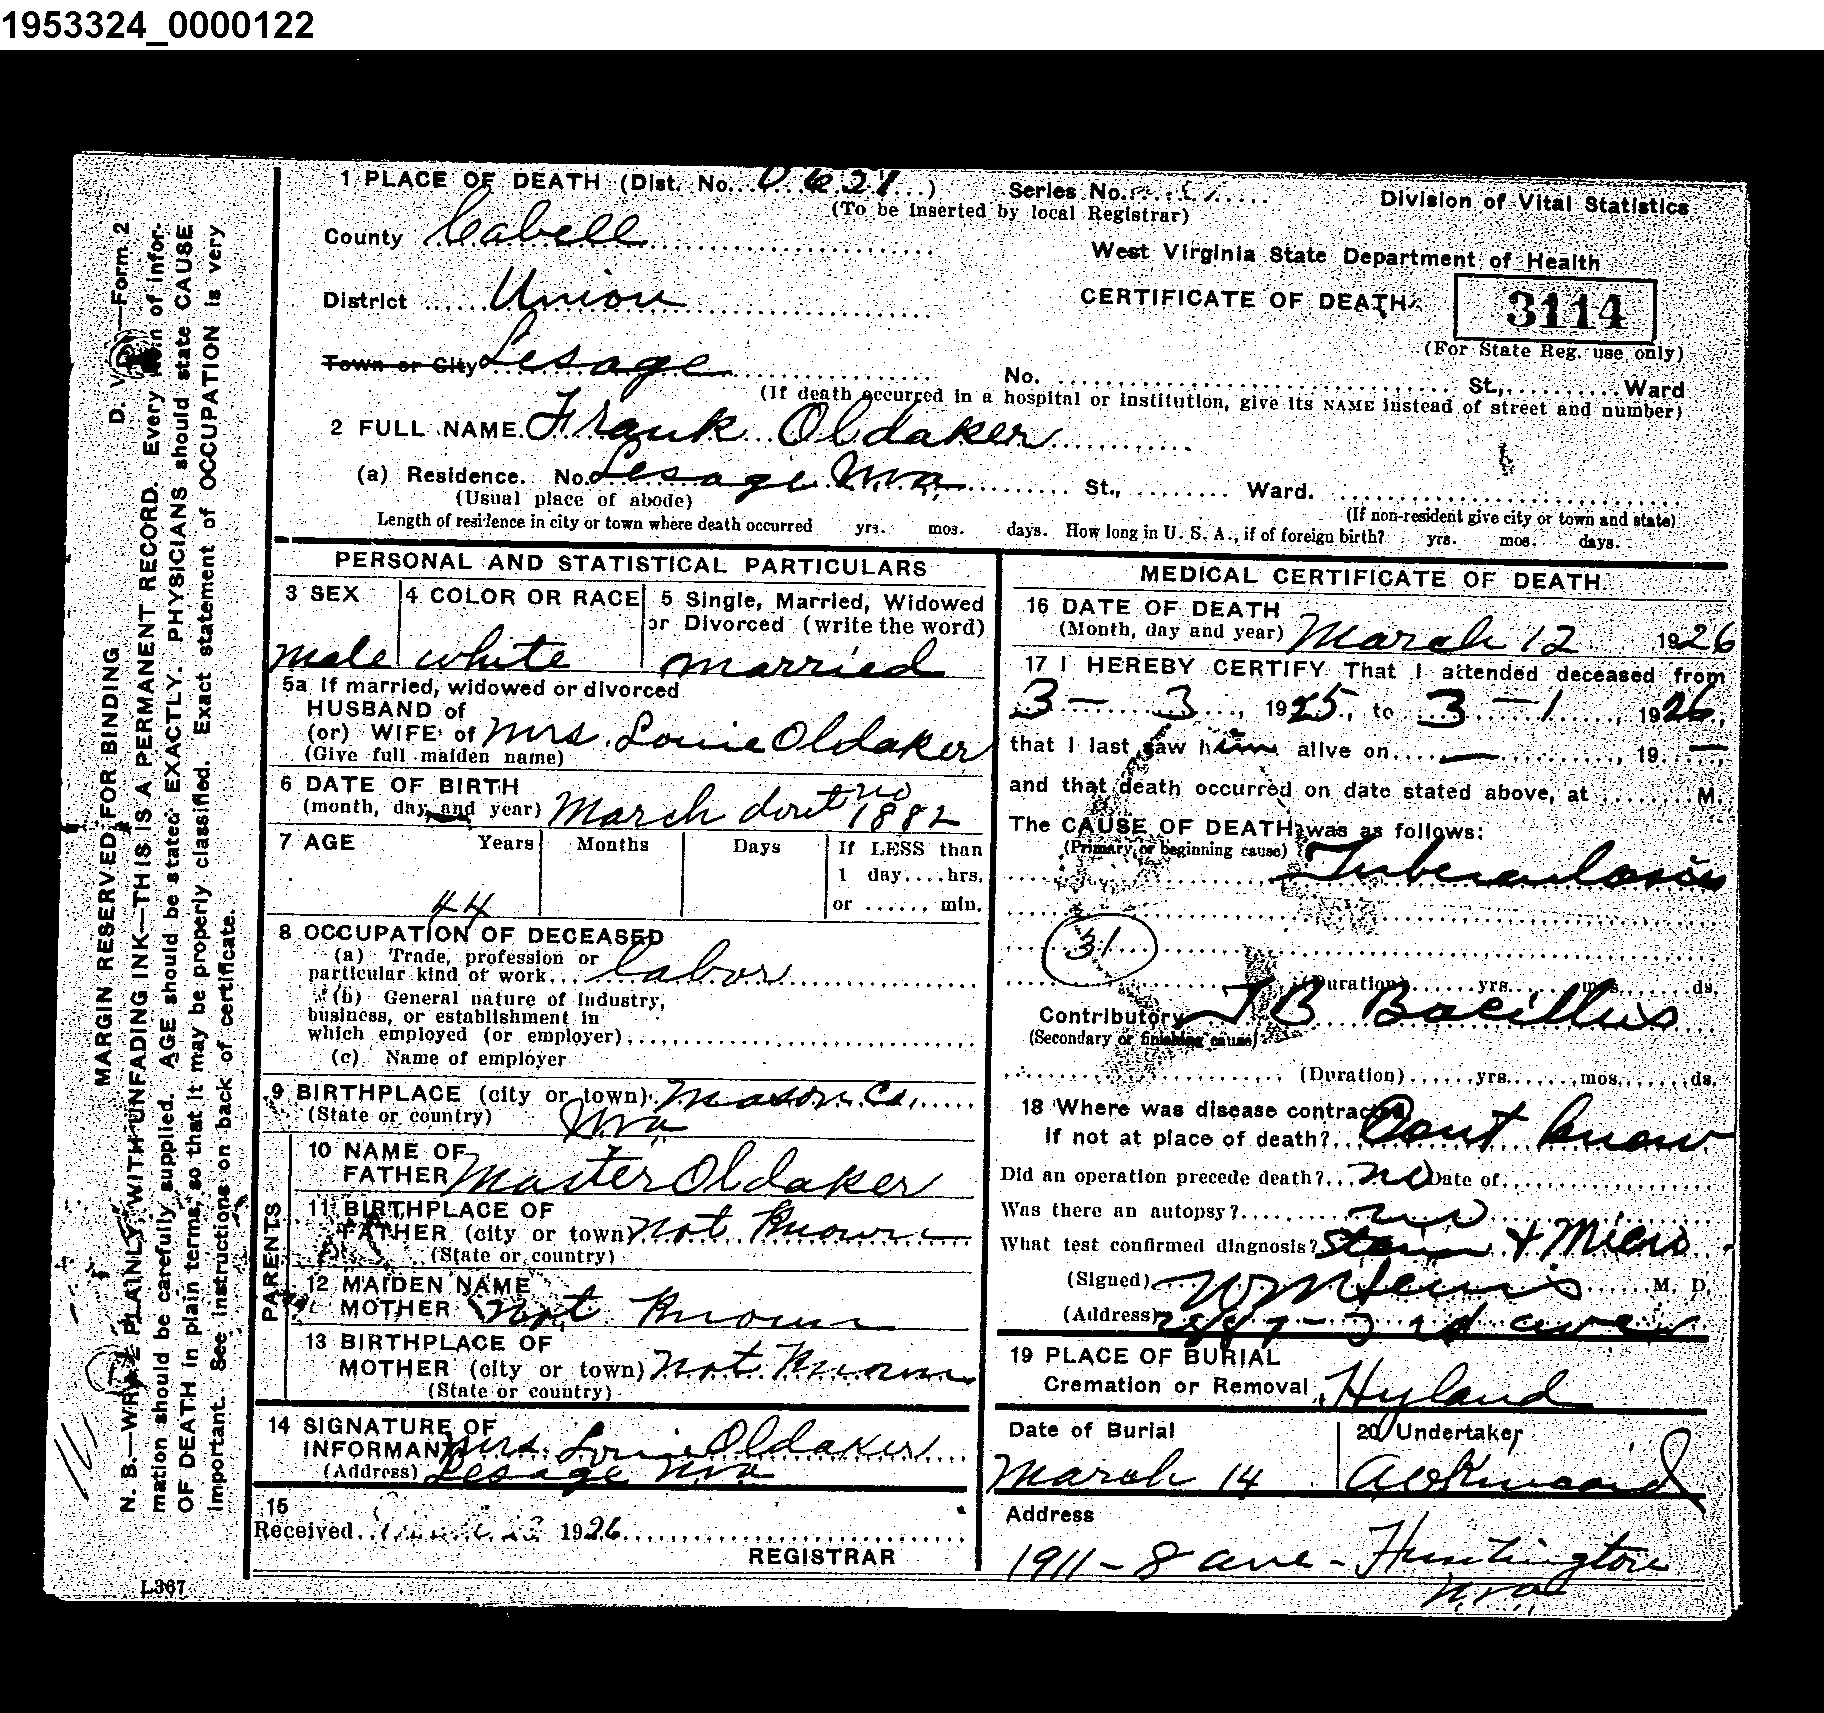 1953324_0000122
1 PLACE OF DEATH (Dist. No. ) Series No.
(To be inserted by local Registrar)
Division of Vital Statistics
County Cabell
West Virginia State Department of Health
District Union
CERTIFICATE OF DEATH
3114
(For State Reg. use only)
Town or City Lesage
No. St., Ward
(If death occurred in a hospital or institution, give its NAME instead of street and number)
2 FULL NAME Frank Oldaker
(a) Residence. No. Lesage W.va. St., Ward.
(Usual place of abode) (If non-resident give city or town and state)
Length of residence in city or town where death occurred yrs. mos. days. How long in U. S. A., if of foreign birth? yrs. mos. days.
PERSONAL AND STATISTICAL PARTICULARS
3 SEX 4 COLOR OR RACE 5 Single, Married, Widowed
or Divorced (write the word)
male white married
5a If married, widowed or divorced
HUSBAND of
(or) WIFE of Mrs. Louie Oldaker
(Give full maiden name)
6 DATE OF BIRTH
(month, day, and year) March dont no 1882
7 AGE Years Months Days If LESS than
1 day....hrs.
44 or ...... min.
8 OCCUPATION OF DECEASED
(a) Trade, profession or
particular kind of work... Labor
(b) General nature of industry,
business, or establishment in
which employed (or employer)
(c) Name of employer
9 BIRTHPLACE (city or town) Mason Co.
(State or country) W va
PARENTS
10 NAME OF
FATHER Master Oldaker
11 BIRTHPLACE OF
FATHER (city or town) not Known
(State or country)
12 MAIDEN NAME
MOTHER not Known
13 BIRTHPLACE OF
MOTHER (city or town) not Known
(State or country)
14 SIGNATURE OF
INFORMANT Mrs. Louie Oldaker
(Address) Lesage W va
15
Received 1926
REGISTRAR
MEDICAL CERTIFICATE OF DEATH
16 DATE OF DEATH
(Month, day and year) March 12 1926
17 I HEREBY CERTIFY That I attended deceased from
3 - 3, 1925, to 3 - 1, 1926,
that I last saw him alive on — 19 —
and that death occurred on date stated above, at M.
The CAUSE OF DEATH was as follows:
(Primary or beginning cause) Tuberculosis
31
(Duration) yrs. mos. ds.
Contributory T B Bacillus
(Secondary or finishing cause)
(Duration) yrs. mos. ds.
18 Where was disease contracted
if not at place of death? Dont know
Did an operation precede death? no Date of
Was there an autopsy? no
What test confirmed diagnosis? Stain + Micro
(Signed) M. D.
(Address)
19 PLACE OF BURIAL
Cremation or Removal Hyland
Date of Burial 20 Undertaker
March 14 A W Kincaid
Address
1911 - 8 ave - Huntington
W.va
MARGIN RESERVED FOR BINDING D. V. —Form 2
N. B.—WRITE PLAINLY, WITH UNFADING INK—THIS IS A PERMANENT RECORD. Every item of infor-
mation should be carefully supplied. AGE should be stated EXACTLY. PHYSICIANS should state CAUSE
OF DEATH in plain terms, so that it may be properly classified. Exact statement of OCCUPATION is very
important. See instructions on back of certificate.
L367